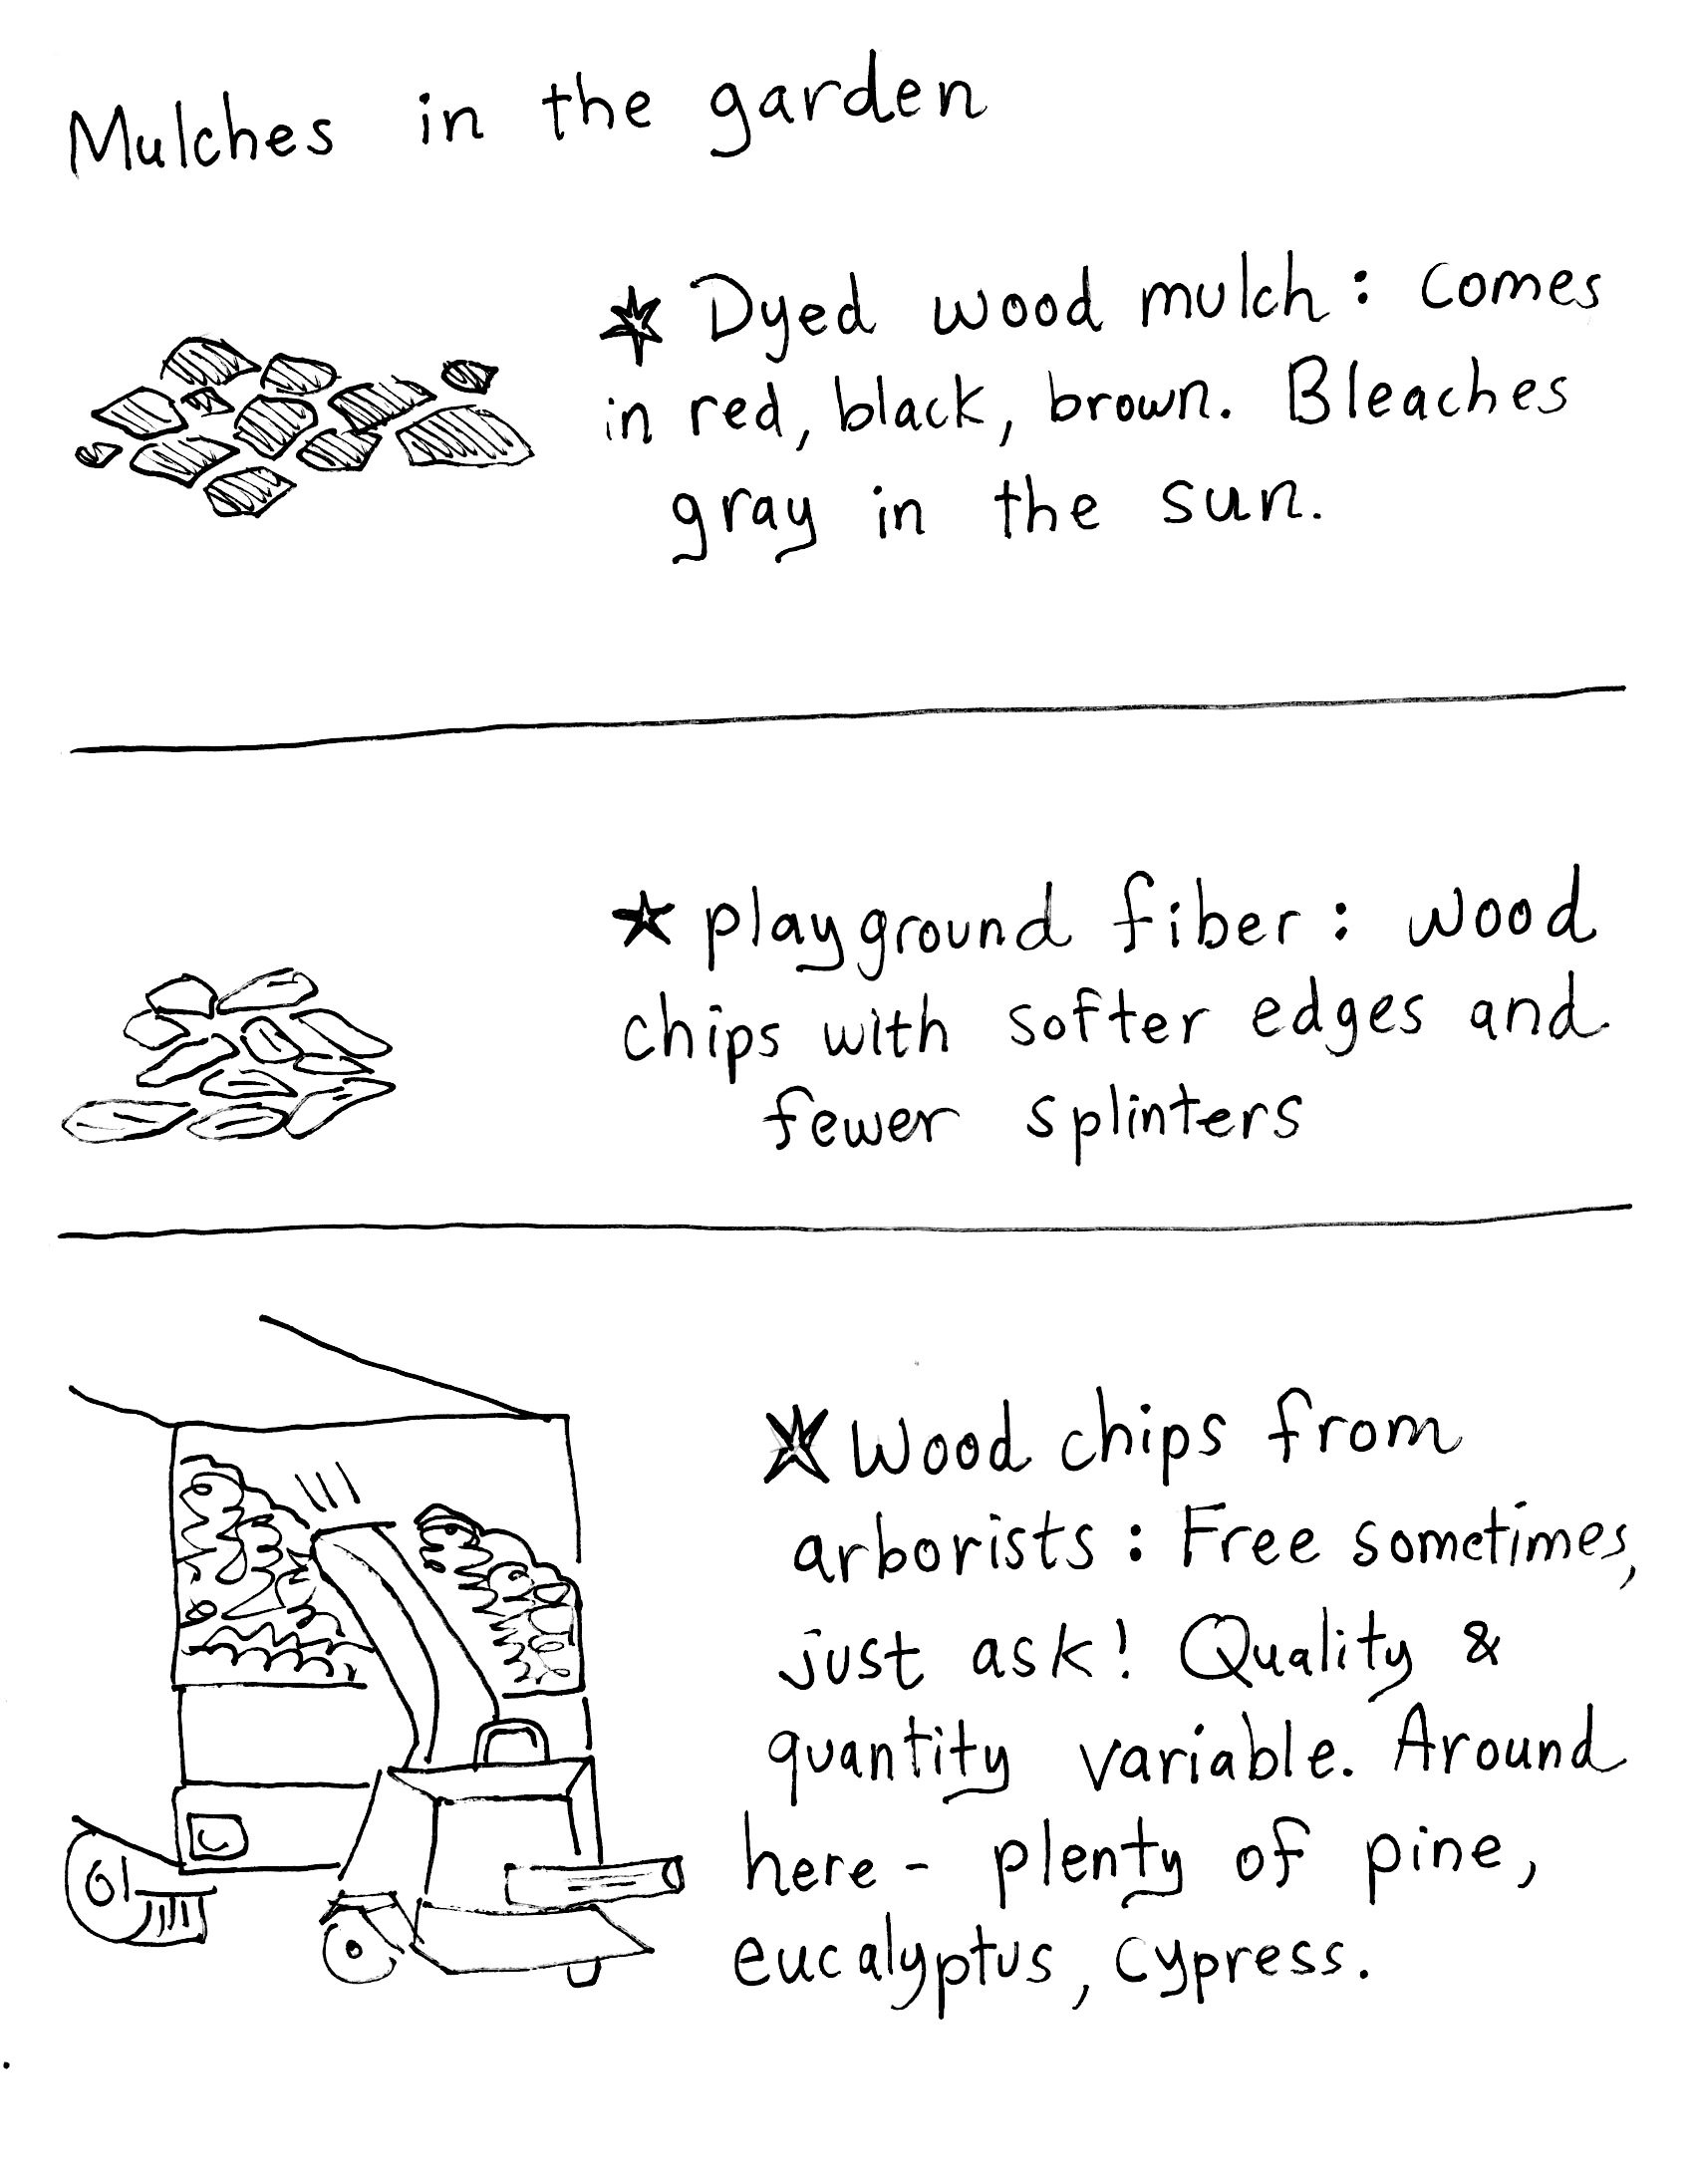 Mulches in the garden
★ Dyed wood mulch: comes
in red, black, brown. Bleaches
gray in the sun.
★ playground fiber: wood
chips with softer edges and
fewer splinters
★ Wood chips from
arborists: Free sometimes,
just ask! Quality &
quantity variable. Around
here - plenty of pine,
eucalyptus, cypress.